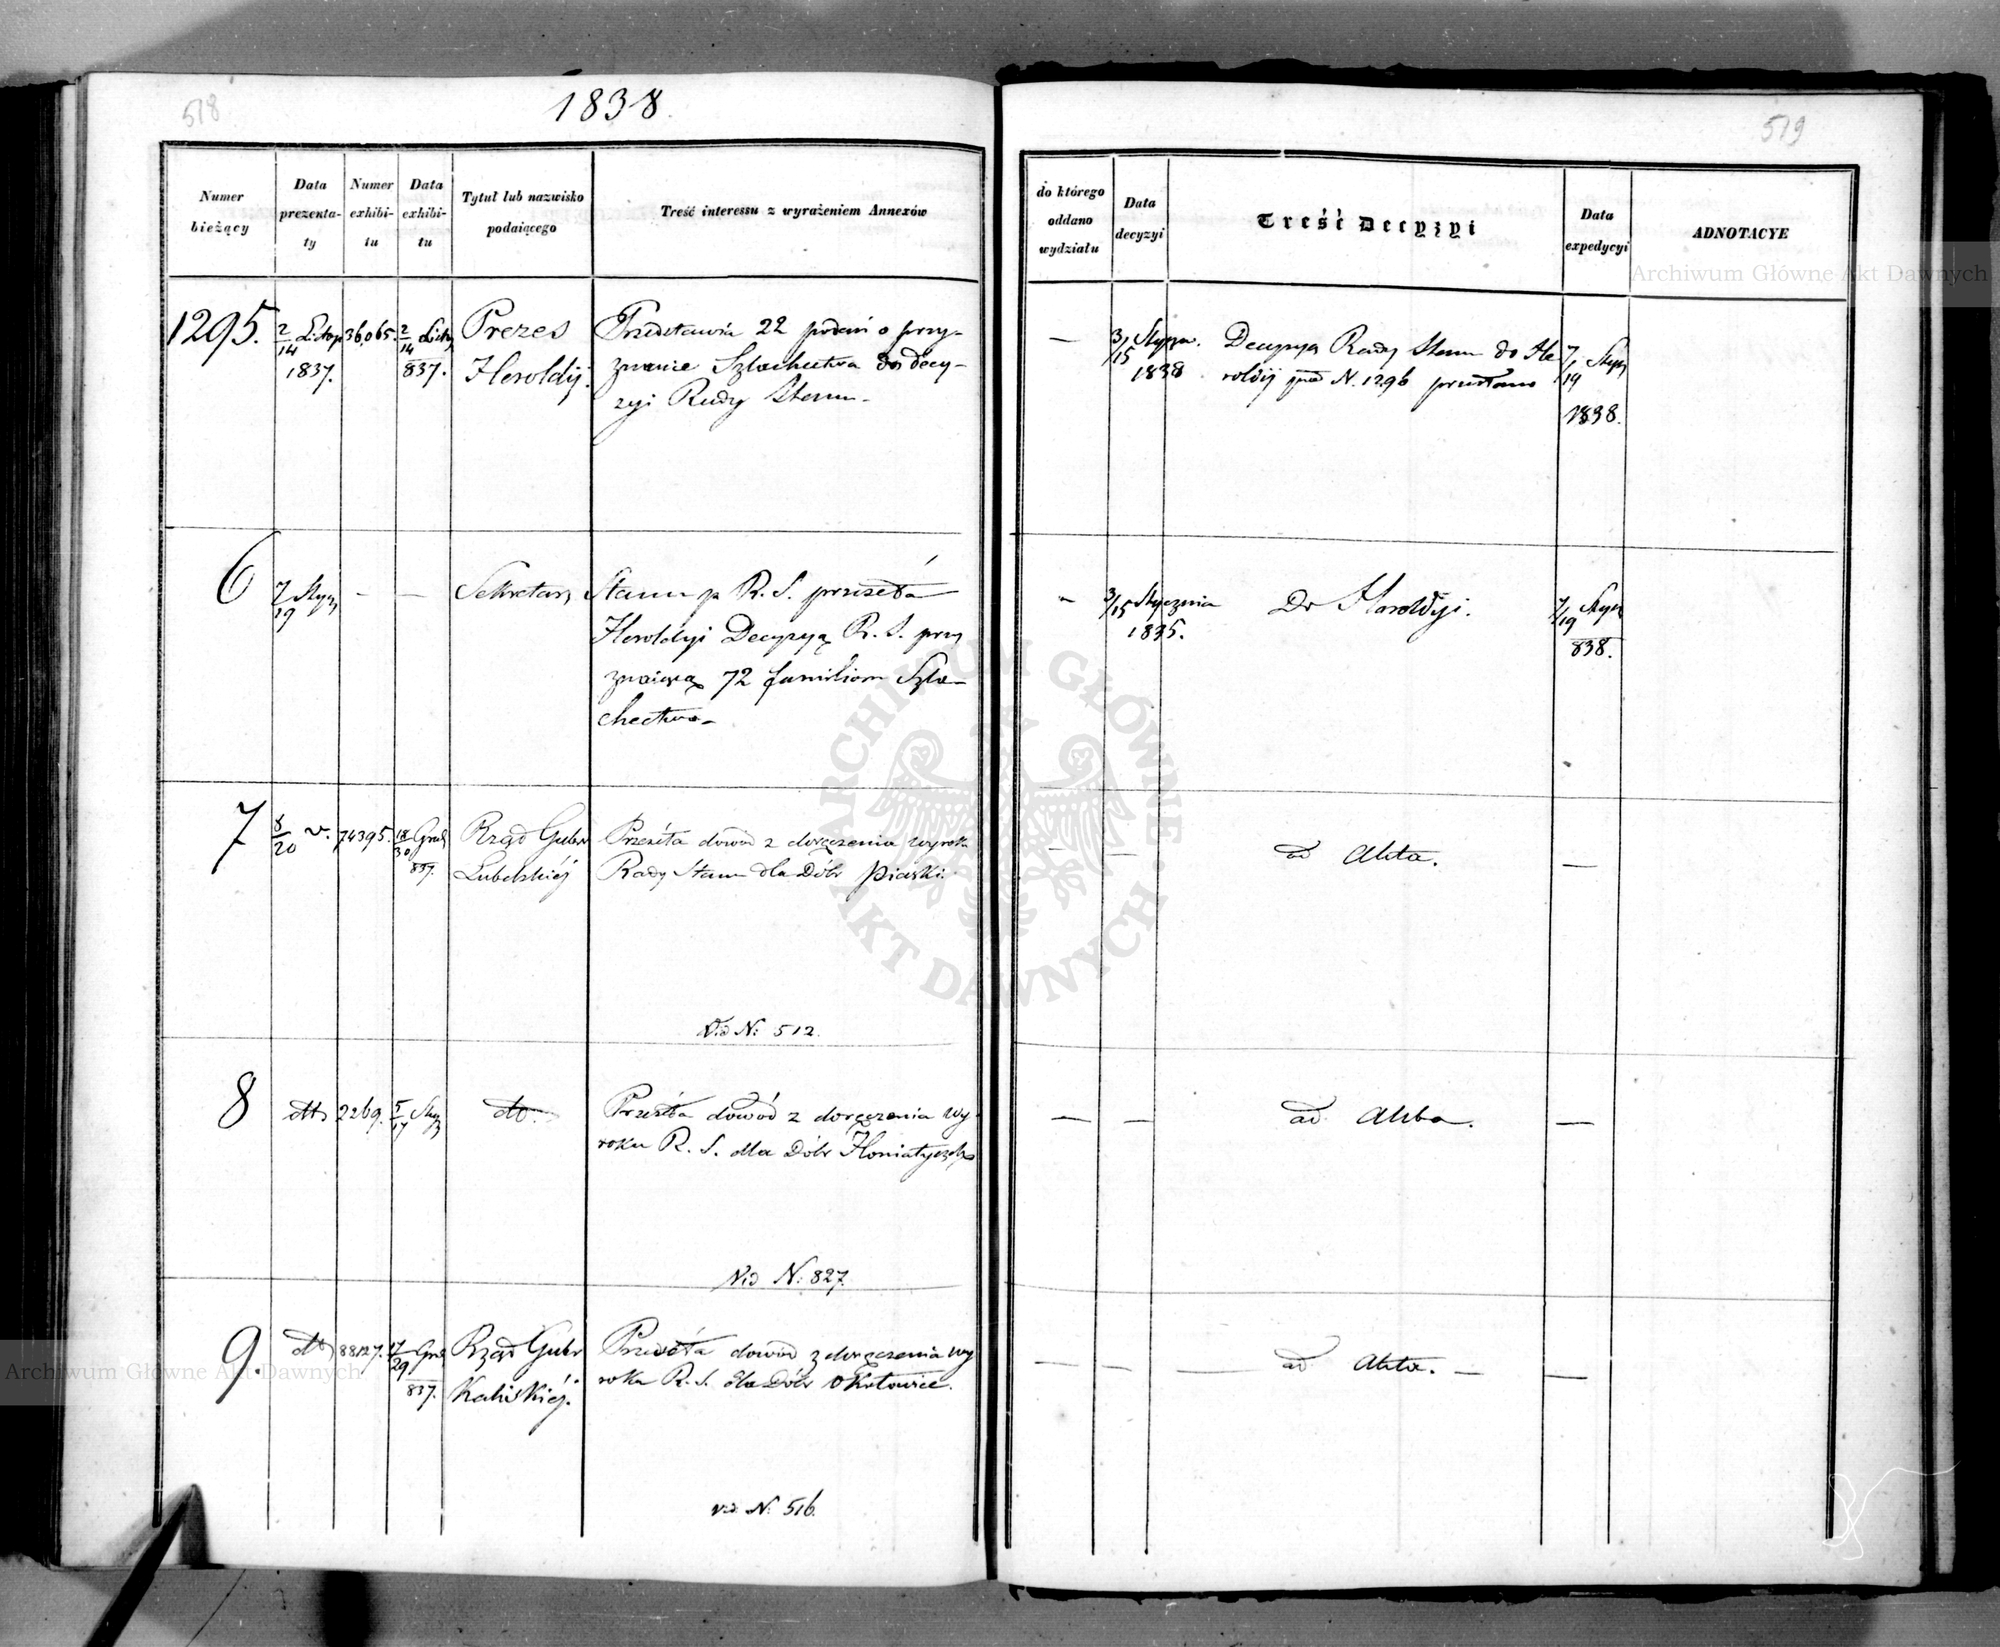 518
1838.
Numer bieżący
Data prezenta-ty
Numer exhibi-tu
Data exhibi-tu
Tytuł lub nazwisko podaiącego
Treść interessu z wyrażeniem Annexów
1295.
2/14 Listop 1837.
36,065.
2/14 Listop 837.
Prezes
Heroldij.
Przedstawia 22 podań o przy-
znanie Szlachectwa do decy-
zyi Rady Stanu.
6
7/19 Stycz
—
—
Sekretarz
Stanu p R. S. przeseła
Heroldyi Decyzyą R. S. przy
znaiącą 72 familiom Szla-
chectwo
7
8/20 v.
74395.
18/30 Grud 837.
Rząd Gubr
Lubelskiéj
Przeséła dowód z doręczenia wyroku
Rady Stanu dla Dóbr Piaski.
Vid N: 512.
8
dtto
2269.
5/17 Stycz
dto.
Przeséła dowód z doręczenia wy
roku R. S. dla Dóbr Honiatycz
Vid N: 827.
9.
dtto
88127.
17/29 Gru 837.
Rząd Gubr
Kaliskiéj.
Przeséła dowód z doręczenia wy
roku R. S. dla Dóbr
Vid N: 516.
519
do którego oddano wydziału
Data decyzyi
Treść Decyzyi
Data expedycyi
ADNOTACYE
—
3/15 Stycz. 1838
Decyzyą Rady Stanu do He
roldij pod N. 1296 przesłano
7/19 Stycz 1838.
-
3/15 Stycznia 1835.
Do Heroldyi.
7/19 Stycz 838.
—
—
ad Akta.
—
—
—
ad Akta.
—
—
—
ad Akta. —
—
Archiwum Główne Akt Dawnych
ARCHIWUM GŁÓWNE AKT DAWNYCH
Archiwum Główne Akt Dawnych